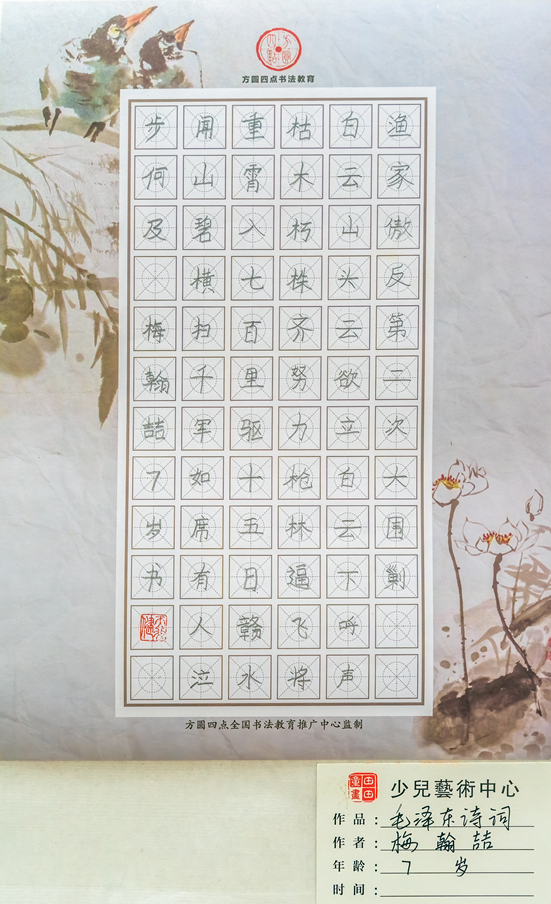 方圆四点书法教育
渔家傲反第二次大围剿
白云山头云欲立白云下呼声
枯木朽株齐努力枪林逼飞将
重霄入七百里驱十五日赣水
闻山碧横扫千军如席有人泣
步何及
梅翰喆7岁书
方圆四点全国书法教育推广中心监制
田田童画
少兒藝術中心
作品：毛泽东诗词
作者：梅翰喆
年龄：7岁
时间：